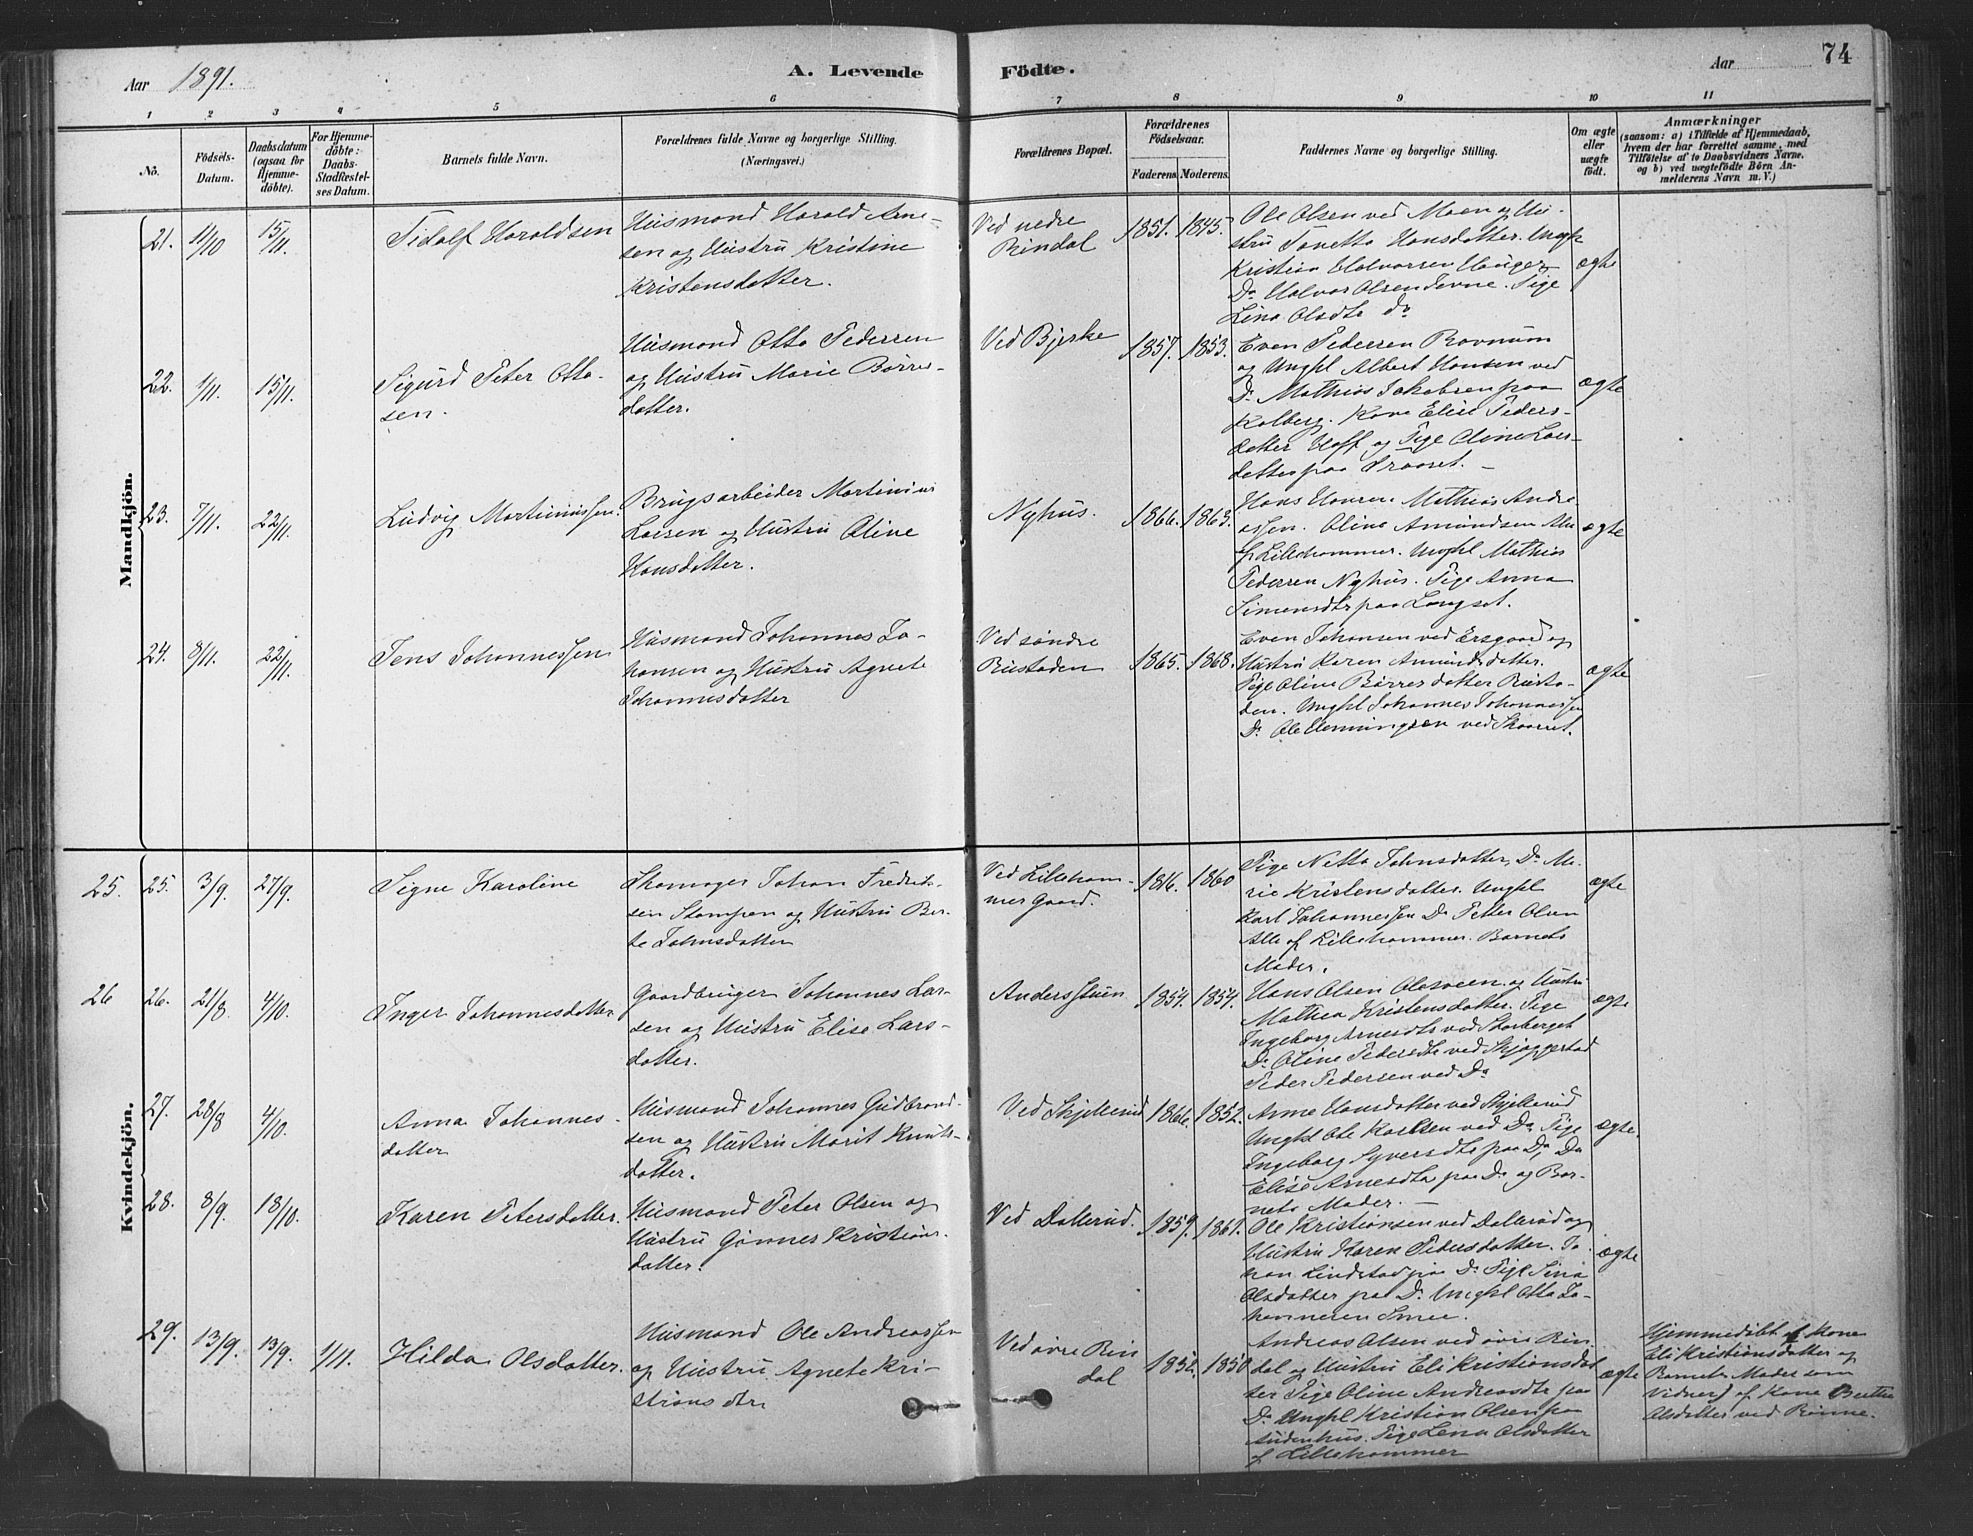 Aar 1891.
A. Levende Födte.
Aar
74
1 2 3 4 5 6 7 8 9 10 11
No.
Födsels-
Datum.
Daabsdatum
(ogsaa for
Hjemme-
döbte).
For Hjemme-
döbte:
Daabs-
Stadfæstel-
ses Datum.
Barnets fulde Navn.
Forældrenes fulde Navne og borgerlige Stilling.
(Næringsvei.)
Forældrenes Bopæl.
Forældrenes
Födselsaar.
Faderens. Moderens.
Faddernes Navne og borgerlige Stilling.
Om ægte
eller
uægte
födt.
Anmærkninger
(saasom: a) i Tilfælde af Hjemmedaab,
hvem der har forrettet samme, med
Tilföielse af to Daabsvidners Navne.
og b) ved uægtefödte Börn An-
melderens Navn m. V.)
Mandkjön.
21. 11/10 15/11.
Tidolf Haraldsen
Husmand Harald Arne-
sen og Hustru Kristine
Kristensdatter.
Ved nedre
Rindal
1851. 1845.
Ole Olsen ved Moen og Hu-
stru Tonetta Hansdatter. Ungk
Kristian Halvorsen Hauger,
Do Halvor Olsen Tevne. Pige
Lina Olsdtr do
ægte
22. 1/11. 15/11.
Sigurd Peter Otto-
sen.
Husmand Otto Pedersen
og Hustru Marie Börres-
datter.
Ved Bjerke
1857. 1853.
Even Pedersen Rovnum
og Ungkl Albert Hansen ved
Do Mathias Jakobsen paa
Kolberg. Kone Elise Peders-
datter Hoff og Pige Oline Lars-
datter paa Traaset. –
ægte
23. 7/11. 22/11.
Ludvig Martiniussen.
Brugsarbeider Martinius
Larsen og Hustru Oline
Hansdatter.
Nyhus.
1866. 1863.
Hans Hansen. Mathias Andre
assen. Oline Amundsen Alle
af Lillehammer. Ungkl Mathias
Pedersen Nyhus. Pige Anna
Simensdtr paa Langset.
ægte
24. 8/11. 22/11.
Jens Johannessen
Husmand Johannes Jo-
hansen og Hustru Agnete
Johannesdatter
Ved söndre
Rustaden
1865. 1868.
Even Johansen ved Ersgaard og
Hustru Karen Amundsdatter.
Pige Oline Börresdatter Rusta-
den. Ungkl Johannes Johannessen
Do. Ole Henningsen ved Skaaret.
ægte
Kvindekjön.
25. 25. 3/9. 27/9.
Signe Karoline
Skomager Johan Fredrik-
sen Stampen og Hustru Ber-
te Johnsdatter
Ved Lilleham-
mer Gaard.
1816. 1860
Pige Netta Johnsdatter, Do Ma-
rie Kristensdatter. Ungkl
Karl Johannessen Do Petter Olsen
Alle af Lillehammer. Barnets
Moder.
ægte
26 26. 21/8 4/10.
Inger Johannesdatter
Gaardbruger Johannes Lar-
sen og Hustru Elise Lars-
datter.
Andersstuen
1854. 1854.
Hans Olsen Olasveen og Hustru
Mathea Kristensdatter. Pige
Ingeborg Arnesdtr ved Storberget
Do Oline Pedersdtr ved Skjaggestad
Peder Pedersen ved Do
ægte
27. 28/8 4/10.
Anna Johannes-
datter
Husmand Johannes Gudbrand-
sen og Hustru Marit Knuts-
datter.
Ved Skjellerud
1866. 1852.
Anne Hansdatter ved Skjellerud
Ungkl Ole Karlsen ved Do Pige
Ingeborg Syversdtr paa Do, Do
Elise Arnesdtr paa Do og Bar-
nets Moder. –
ægte.
28. 8/9. 18/10.
Karen Petersdatter.
Husmand Peter Olsen og
Hustru Gönner Kristians-
datter.
Ved Dallerud.
1859. 1861.
Ole Kristiansen ved Dallerud og
Hustru Karen Pedersdatter. Jo-
han Lindstad paa Do Pige Lina
Olsdatter paa Do. Ungkl Otto Jo-
hannesen Smee.
ægte
29. 13/9. 13/9. 1/11.
Hilda Olsdatter.
Husmand Ole Andreassen
og Hustru Agnete Kri-
stiansdtr.
Ved övre Rin
dal
1852. 1850
Andreas Olsen ved övre Rin
dal og Hustru Eli Kristiansdat
ter Pige Oline Andreasdtr paa
Do Ungkl Kristian Olsen paa
Audenhus. Pige Lena Olsdatter
af Lillehammer
ægte
Hjemmedöbt af Kone
Eli Kristiansdatter og
Barnets Moder som
Vidner) af Kone Berthe
Olsdatter ved Rönne.